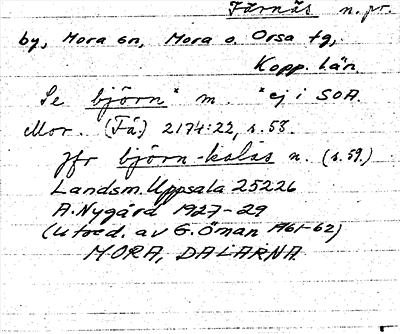 Färnäs n. pr.
by, Mora sn, Mora o. Orsa tg,
Kopp. län.
Se björn* m. *ej i SOA.
Mor. (Fä.) 2174:22, s. 58.
Jfr björn-kalas n. (s. 59.)
Landsm. Uppsala 25226
A. Nygård 1927-29
(utred. av G. Öman 1961-62)
MORA, DALARNA